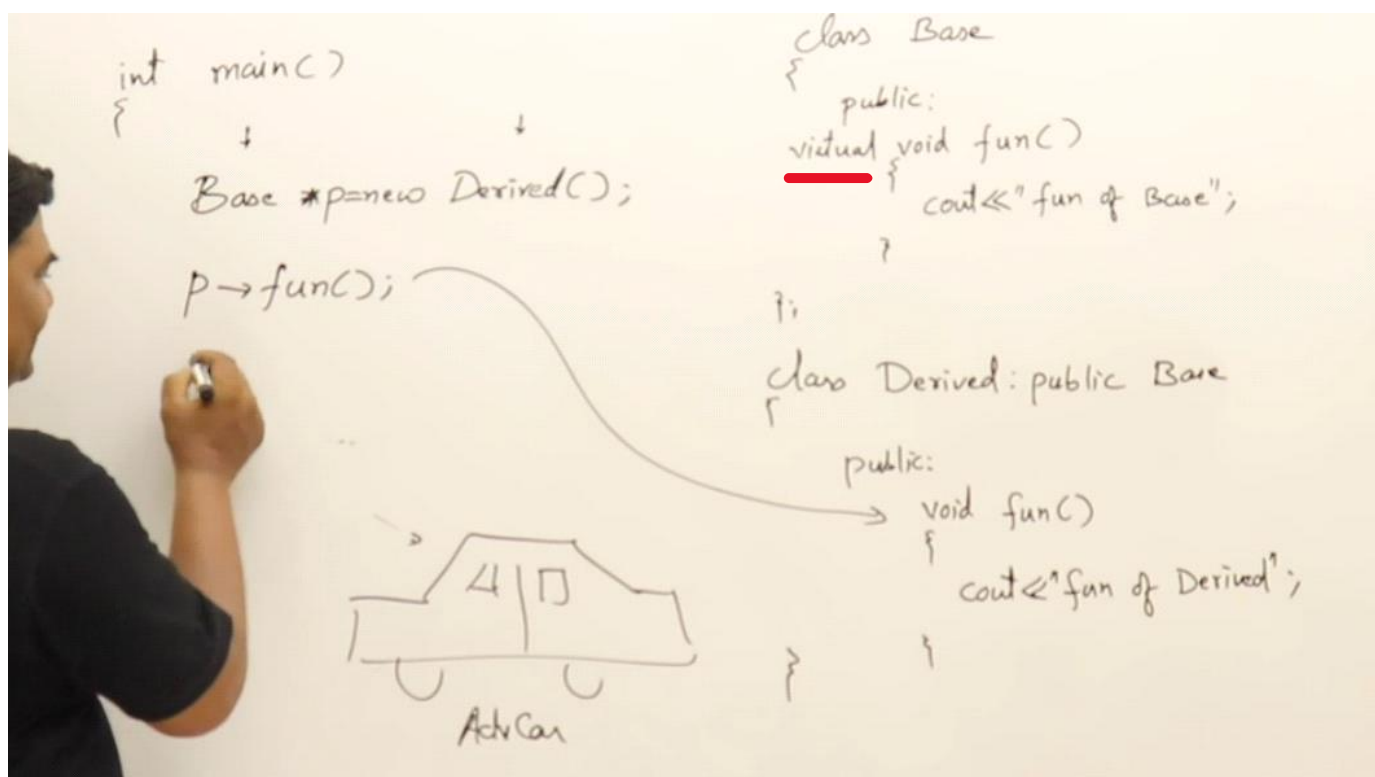 int main()
{
Base *p=new Derived();
p→fun();
class Base
{
public:
virtual void fun()
{
cout<<"fun of Base";
}
};
class Derived: public Base
{
public:
void fun()
{
cout<<"fun of Derived";
}
}
AdvCar